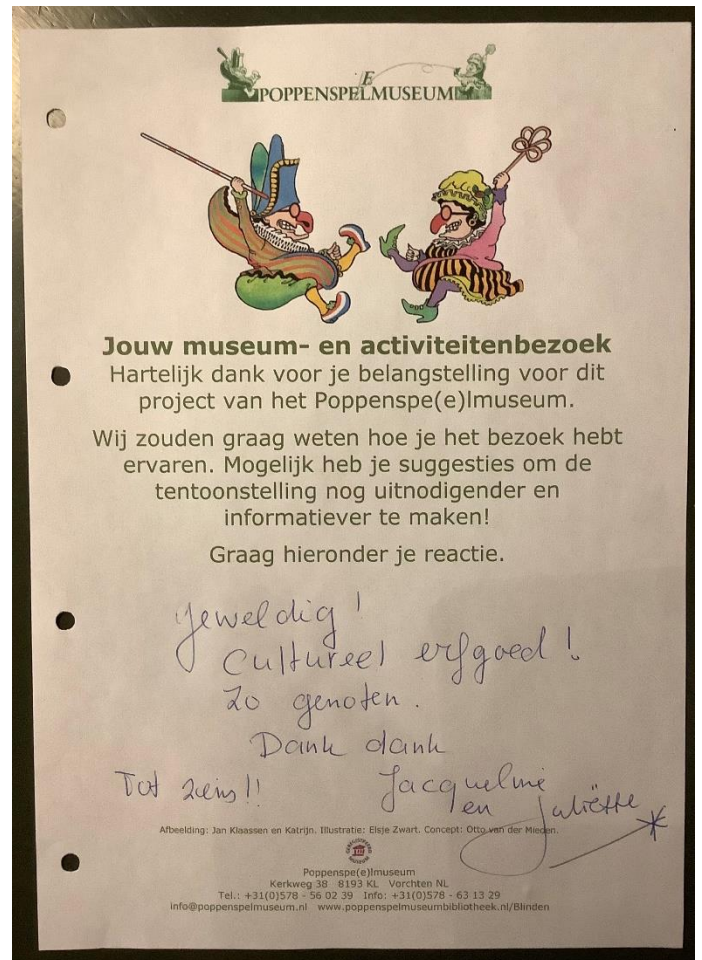 POPPENSPEELMUSEUM
Jouw museum- en activiteitenbezoek
Hartelijk dank voor je belangstelling voor dit
project van het Poppenspe(e)lmuseum.
Wij zouden graag weten hoe je het bezoek hebt
ervaren. Mogelijk heb je suggesties om de
tentoonstelling nog uitnodigender en
informatiever te maken!
Graag hieronder je reactie.
Geweldig!
Cultureel erfgoed!
Zo genoten.
Dank dank
Tot ziens!! Jacqueline
en Juliëtte
Afbeelding: Jan Klaassen en Katrijn. Illustratie: Elsje Zwart. Concept: Otto van der Mieden.
GEREGISTREERD MUSEUM
Poppenspe(e)lmuseum
Kerkweg 38 8193 KL Vorchten NL
Tel.: +31(0)578 - 56 02 39 Info: +31(0)578 - 63 13 29
info@poppenspelmuseum.nl www.poppenspelmuseumbibliotheek.nl/Blinden